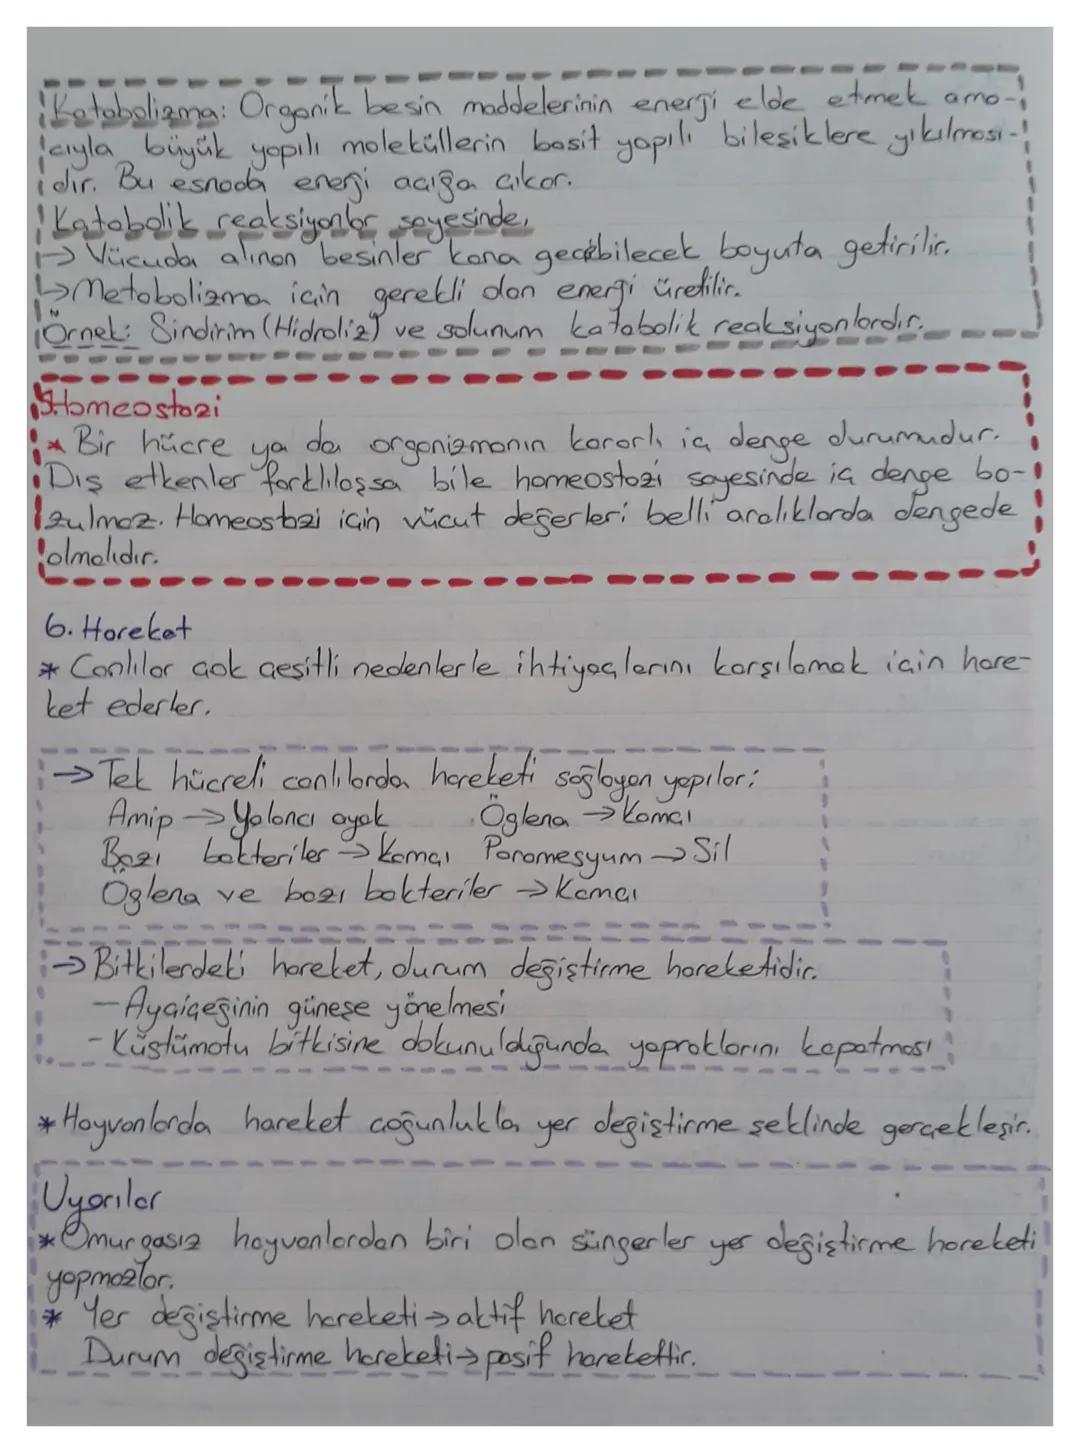 Katabolizma: Organik besin maddelerinin enerji elde etmek ama-
cıyla büyük yapılı moleküllerin basit yapılı bileşiklere yıkılması-
dır. Bu esnada enerji açığa çıkar.
Katabolik reaksiyonlar sayesinde,
→ Vücuda alınan besinler kana geçebilecek boyuta getirilir.
↳ Metabolizma için gerekli olan enerji üretilir.
Örnek: Sindirim (Hidroliz) ve solunum katabolik reaksiyonlardır.
5. Homeostazi
* Bir hücre ya da organizmanın kararlı iç denge durumudur.
Dış etkenler farklılaşsa bile homeostazi sayesinde iç denge bo-
zulmaz. Homeostazi için vücut değerleri belli aralıklarda dengede
olmalıdır.
6. Hareket
* Canlılar çok çeşitli nedenlerle ihtiyaçlarını karşılamak için hare-
ket ederler.
→ Tek hücreli canlılarda hareketi sağlayan yapılar:
Amip → Yalancı ayak Öglena → Kamçı
Bazı bakteriler → Kamçı Paramesyum → Sil
Öglena ve bazı bakteriler → Kamçı
→ Bitkilerdeki hareket, durum değiştirme hareketidir.
- Ayçiçeğinin güneşe yönelmesi
- Küstümotu bitkisine dokunulduğunda yapraklarını kapatması
* Hayvanlarda hareket çoğunlukla yer değiştirme şeklinde gerçekleşir.
Uyarılar
* Omurgasız hayvanlardan biri olan süngerler yer değiştirme hareketi
yapmazlar.
* Yer değiştirme hareketi → aktif hareket
Durum değiştirme hareketi → pasif harekettir.